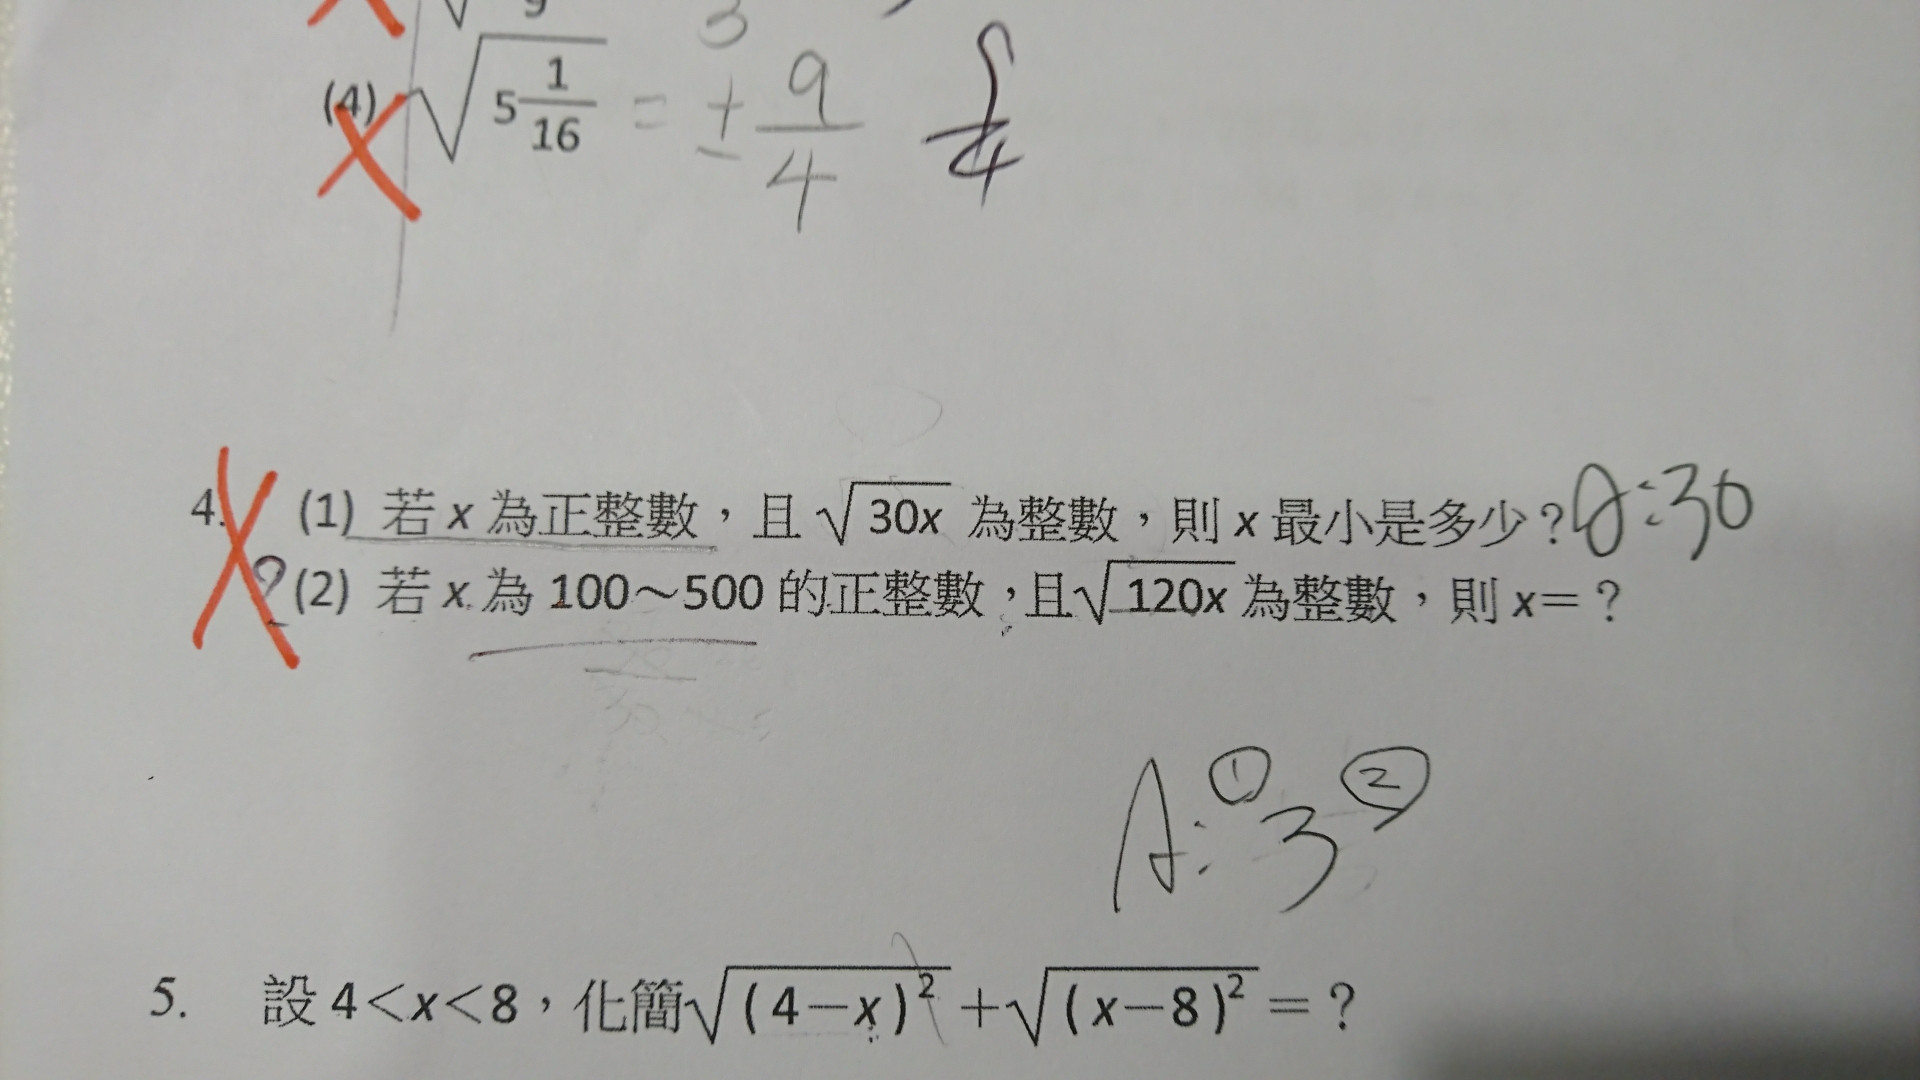 (4) √5 1/16 = ± 9/4 9/4
4. (1) 若 x 為正整數，且 √30x 為整數，則 x 最小是多少？A:30
(2) 若 x 為 100～500 的正整數，且√120x 為整數，則 x＝？
A: ① 3 ②
5. 設 4＜x＜8，化簡√(4－x)² ＋√(x－8)² ＝？